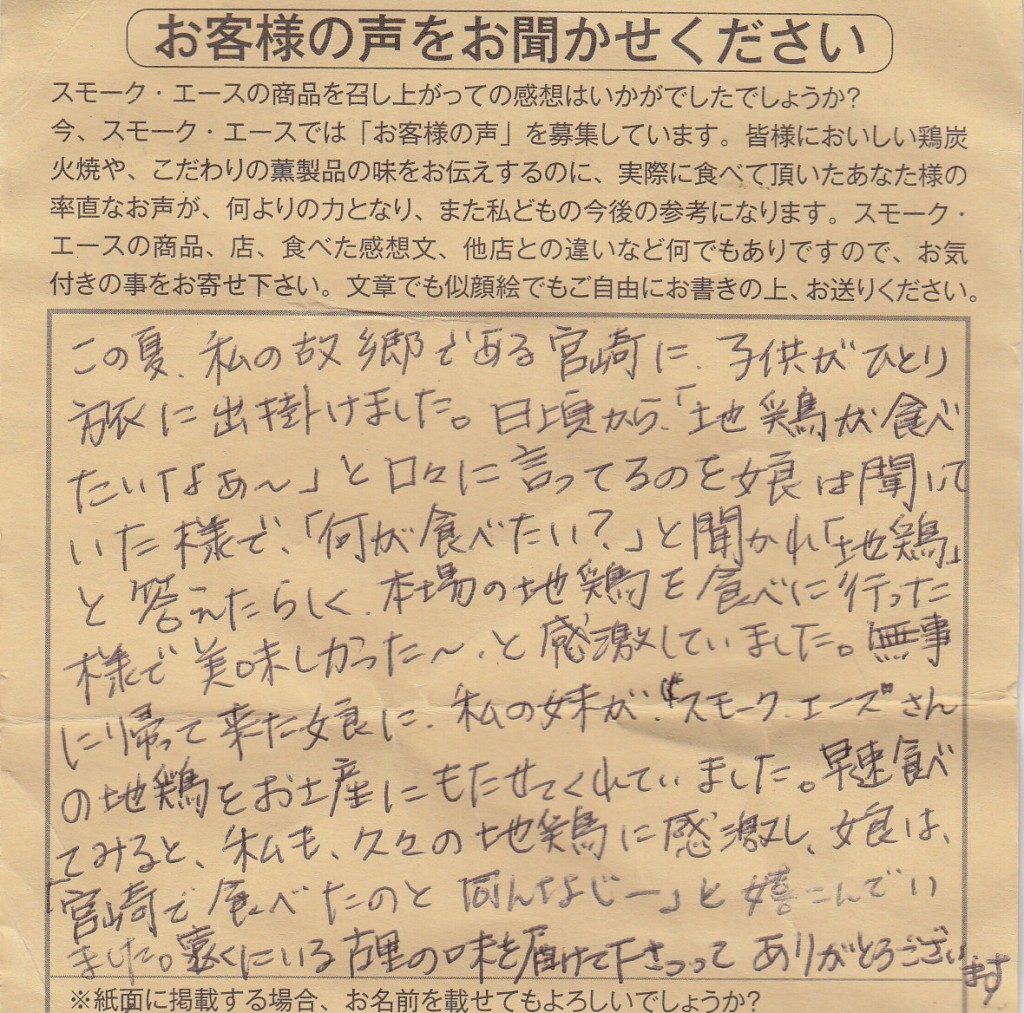 お客様の声をお聞かせください
スモーク・エースの商品を召し上がっての感想はいかがでしたでしょうか?
今、スモーク・エースでは「お客様の声」を募集しています。皆様においしい鶏炭
火焼や、こだわりの薫製品の味をお伝えするのに、実際に食べて頂いたあなた様の
率直なお声が、何よりの力となり、また私どもの今後の参考になります。スモーク・
エースの商品、店、食べた感想文、他店との違いなど何でもありですので、お気
付きの事をお寄せ下さい。文章でも似顔絵でもご自由にお書きの上、お送りください。
この夏、私の故郷である宮崎に、子供がひとり
旅に出掛けました。日頃から、「地鶏が食べ
たいなぁ〜」と口々に言ってるのを娘は聞いて
いた様で、「何が食べたい?」と聞かれ「地鶏」
と答えたらしく、本場の地鶏を食べに行った
様で美味しかった〜、と感激していました。無事
に帰って来た娘に、私の妹が、"スモーク、エース"さん
の地鶏をお土産にもたせてくれていました。早速食べ
てみると、私も、久々の地鶏に感激し、娘は、
「宮崎で食べたのと同んなじー」と嬉こんでい
ました。遠くにいる古里の味を届けて下さって ありがとうござい
ます
※紙面に掲載する場合、お名前を載せてもよろしいでしょうか?